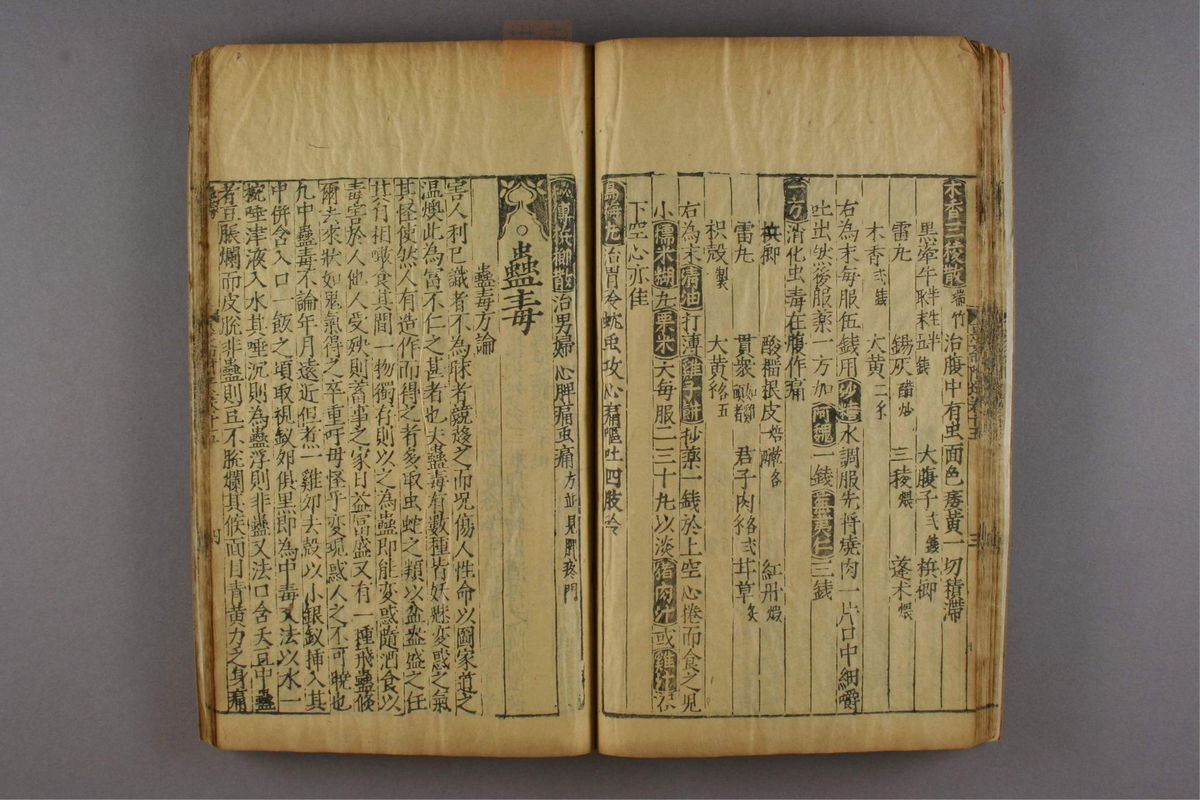 木香三稜散 治腹中有虫面色痿黄一切積滯
黒牽牛半生半取末五錢 大腹子弍錢 梹榔
雷丸 錫灰醋炒 三稜煨 蓬术煨
木香弍錢 大黄二
右為末每服伍錢用砂糖水調服先將燒肉一片口中細嚼
吐出然後服藥一方加阿魏一錢蕪荑仁三錢
一方消化虫毒在腹作痛
梹榔 酸榴根皮焙 各 紅丹煅
雷丸 貫衆如雞頭者 君子肉各弍 茸草炙
枳殼製 大黄各五
右為末清油打薄雞子餅抄藥一錢於上空心捲而食之児
小儒米糊丸粟米大每服二三十丸以淡猪肉汁或雞汁
下空心亦佳
烏梅丸治胃冷蚘虫攻心痛嘔吐四肢冷
秘傳梹榔散治男婦心脾痛虫痛方並見脾疼門
蠱毒
蠱毒方論
害人利己識者不為時者競趍之而咒傷人性命以圖家道之
温燠此為富不仁之甚者也夫蠱毒有數種皆妖魅変惑之氣
其怪使然人有造作而得之者多取虫蛇之類以盆盎盛之任
其自相噉食其間一物獨有則以之為蠱即能変惑隨酒食以
毒害於人他人受殃則蓄事之家日益富盛又有一種飛蠱倏
爾去來狀如鬼氣得之卒重吁毋怪乎変現惑人之不可曉也
凡中蠱毒不論年月遠近但煮一雞夘去殼以小銀釵挿入其
中併含入口一飯之頃取視釵夘俱黒即為中毒又法以水一
椀唾津液入水其唾沉則為蠱浮則非蠱又法口含大豆中蠱
者豆脹爛而皮脫非蠱則豆不脫爛其候面目青黄力乏身痛
三
四